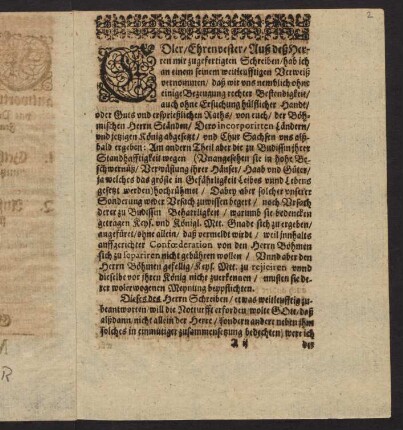 2
EDler/Ehrenvester/Auß deß Her-
ren mir zugefertigten Schreiben/hab ich
in einem seinem weitleufftigen Verweiß
vernommen/ daß wir uns newlich ohne
einige Bezeugung rechter Bestendigkeit/
auch ohne Ersuchung hülflicher Handt/
oder Guts und ersprießlichen Raths/ von euch/ der Böh-
mischen Herrn Ständen/ Dero incorporirten Ländern/
und jetzigen König abgesetzt/ und Chur Sachsen uns als-
bald ergeben: Am andern Theil aber die zu Budissin ihrer
Standhafftigkeit wegen (Unangesehen sie in hohe Be-
schwernüß/ Verwüstung ihrer Häuser/ Haab und Güter/
ja welches das gröste in Gefährligkeit Leibes unnd Lebens
gesetzt werden) hochrühmet/ Dabey aber solcher unserer
Sonderung wegen Ursach zu wissen begert/ nach Ursach
derer zu Budissen Beharrligkeit/ warumb sie bedencken
getragen Keys. und Königl. Mtt. Gnade sich zu ergeben/
angeführt/ ohne allein/ daß vermeldt wirdt/ weil innhalts
auffgerichter Confœderation von den Herrn Böhmen
sich zu separiren nicht gebühren wollen/ Unnd aber den
Herrn Böhmen gefellig/ Keys. Mtt. zu rejiciren unnd
dieselbe vor ihren König nicht zuerkennen/ musten sie de-
rer wolerwogenen Meynung beypflichten.
Dieses des Herrn Schreiben/ etwas weitleufftig zu-
beantworten/ will die Notturfft erfordern/ wolte GOtt/ daß
alßdann/ nicht allein der Herr/ sondern andere neben ihm
solches in einmütiger zusammensetzung bedechten/ were ich
A ij
der